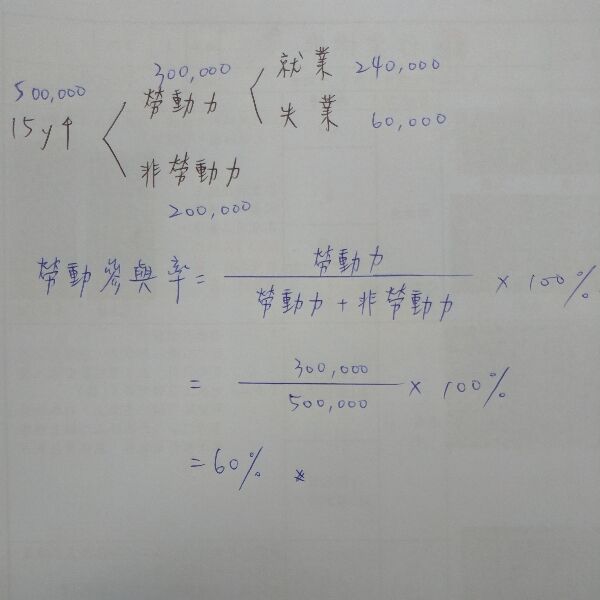 300,000 就業 240,000
500,000 勞動力 失業 60,000
15y↑
非勞動力
200,000
勞動參與率 = 勞動力 / 勞動力 + 非勞動力 × 100%
= 300,000 / 500,000 × 100%
= 60% *